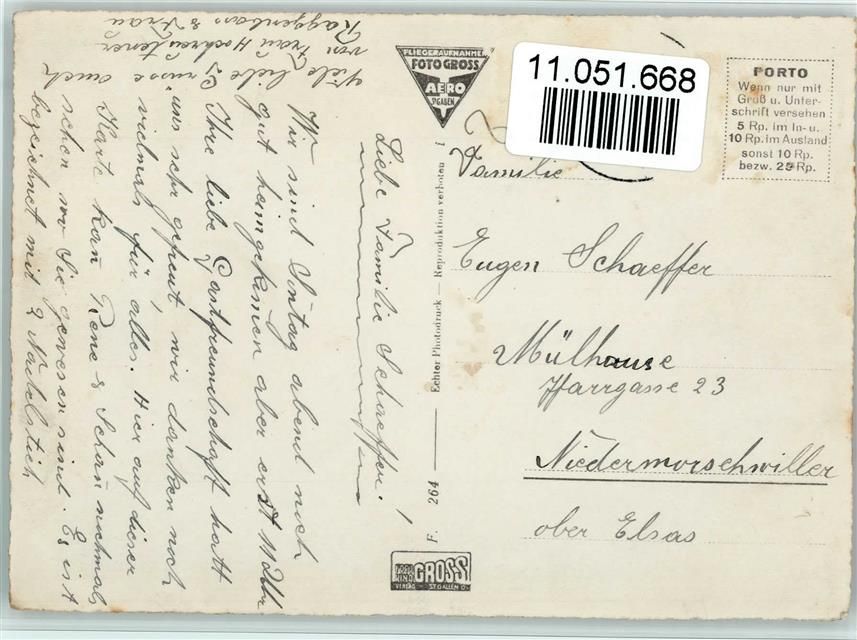 Liebe Familie Schaeffer!
Wir sind Sontag abend noch
gut heimgekomen aber erst 11 Uhr
Ihre liebe Gastfreundschaft hatt
uns sehr gefreut, wir danken noch
vielmals für alles. Hier auf dieser
Karte kan Rene & Schan nochmals
sehen wo Sie gewesen sind. Es ist
bezeichnet mit 2 Nadelstich
Viele liebe Grüsse auch
von Frau Hochreutener
Raggenbass & Frau
FLIEGERAUFNAHME
FOTO GROSS
AERO
ST. GALLEN
11.051.668
PORTO
Wenn nur mit
Gruß u. Unter-
schrift versehen
5 Rp. im In- u.
10 Rp. im Ausland
sonst 10 Rp.
bezw. 25 Rp.
F. 264 — Echter Photodruck — Reproduktion verboten !
Familie
Eugen Schaeffer
Mülhause
Pfarrgasse 23
Niedermorschwiller
ober Elsas
FOTO
GROSS
VERLAG - ST. GALLEN O.